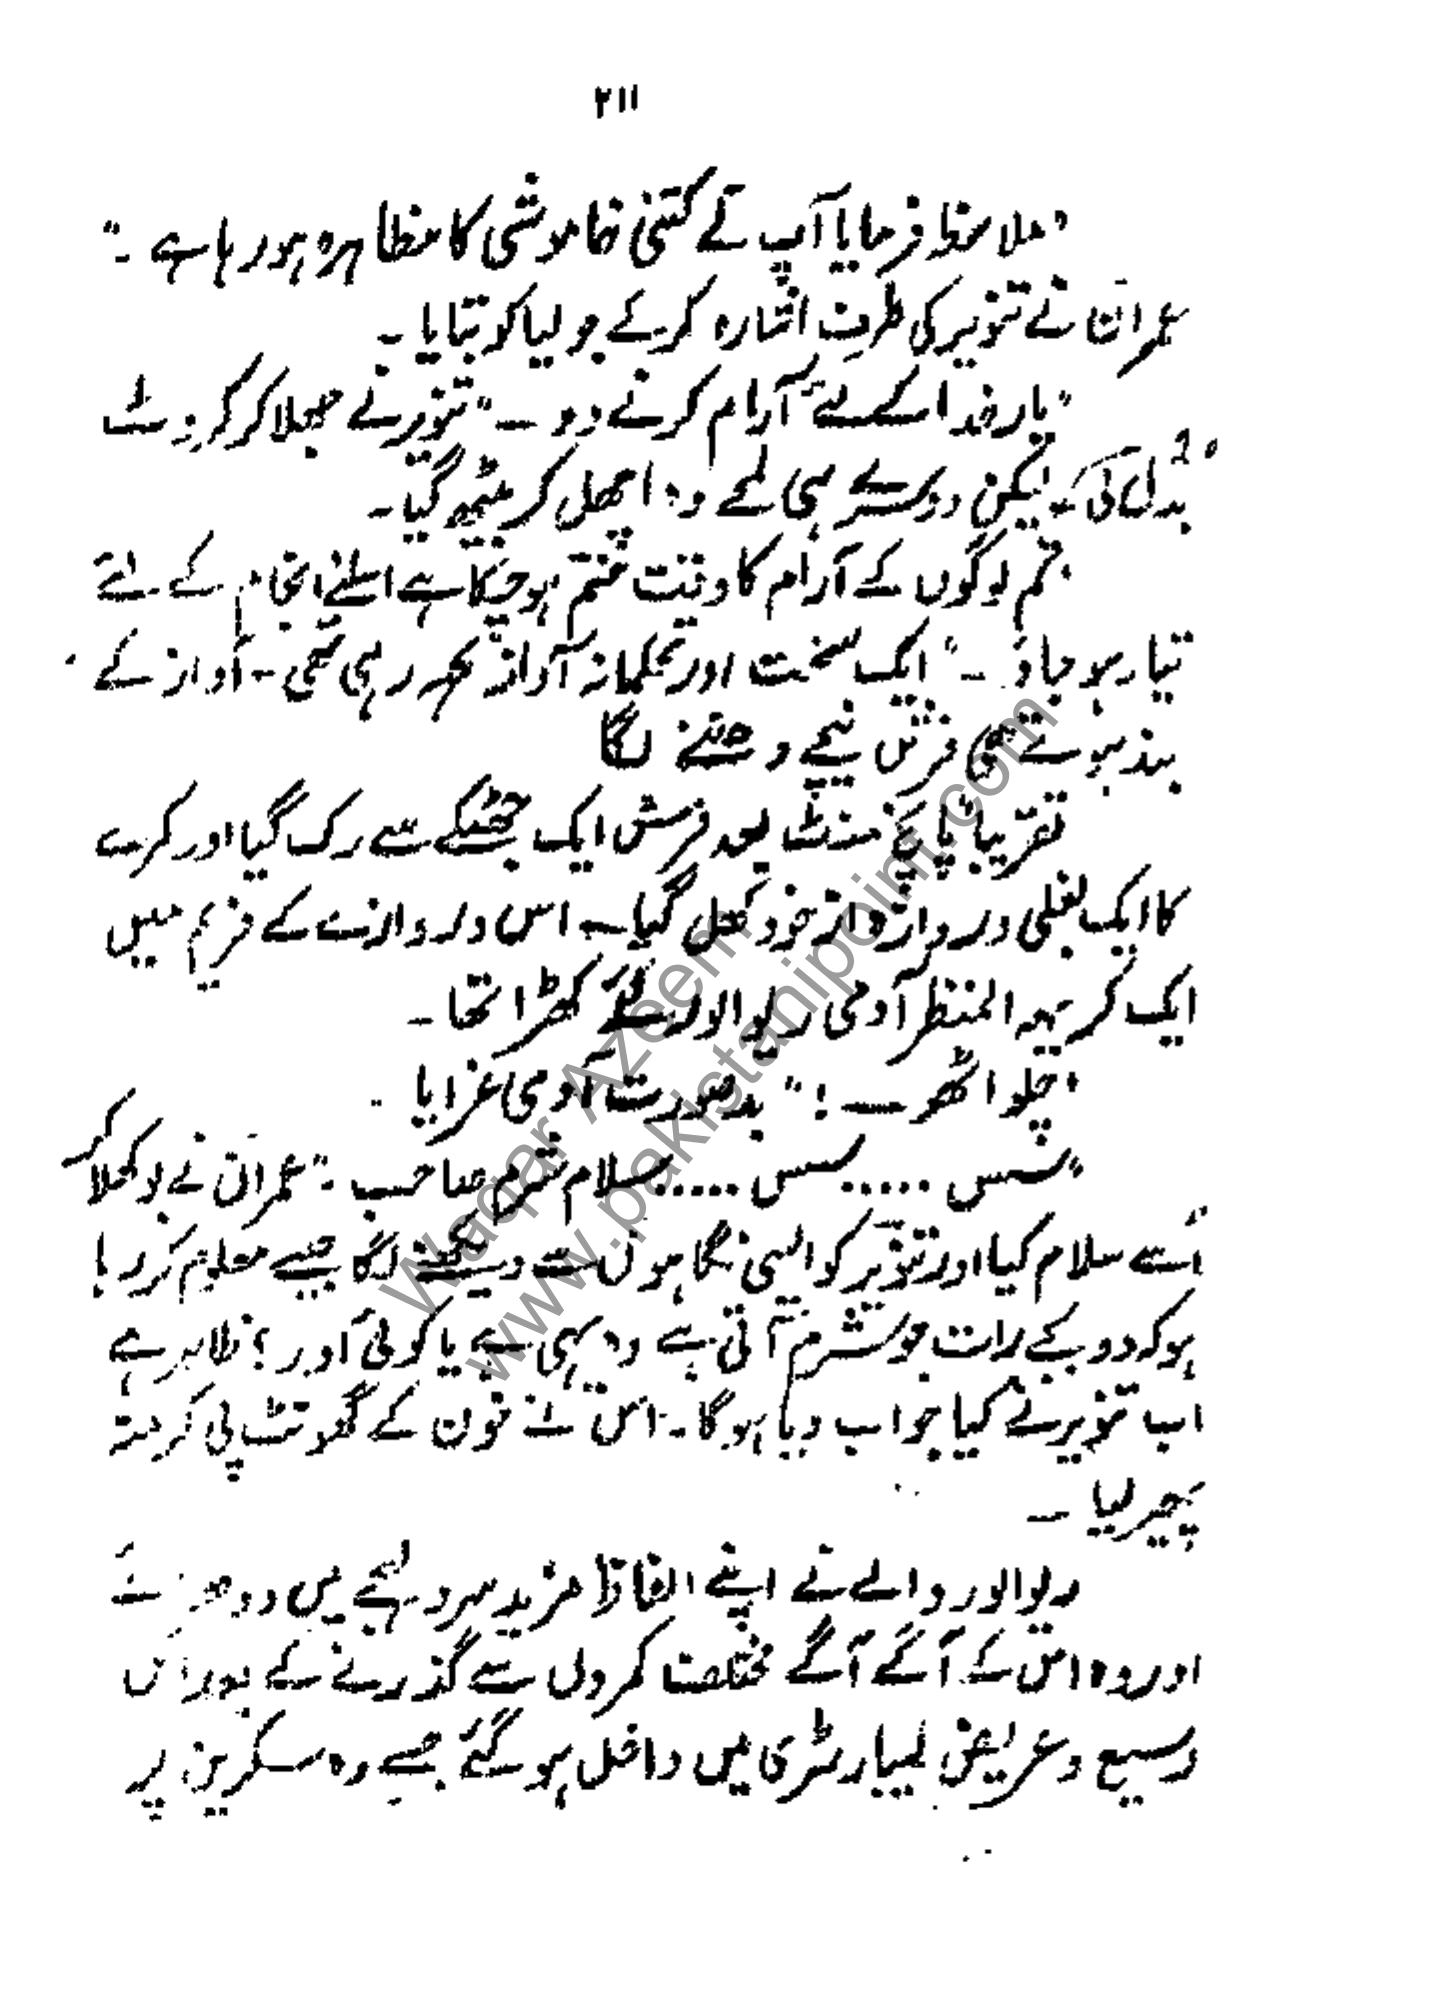 ۲۱۱
"ملاحظہ فرمایا آپ نے کتنی خاموشی کا مظاہرہ ہو رہا ہے۔"
عمران نے تنویر کی طرف اشارہ کر کے جولیا کو بتایا۔
"یار خدا کے لئے آرام کرنے دو ـــ" تنویر نے جھلا کر کروٹ
بدل لی۔ لیکن دوسرے ہی لمحے وہ اچھل کر بیٹھ گیا۔
"تم لوگوں کے آرام کا وقت ختم ہو چکا ہے اسلئے انجام کے لئے
تیار ہو جاؤ۔" ایک سخت اور تحکمانہ آواز کہہ رہی تھی۔ آواز کے
بند ہوتے ہی فرش نیچے دھنسنے لگا
تقریباً پانچ منٹ بعد فرش ایک جھٹکے سے رک گیا اور کمرے
کا ایک بغلی دروازہ از خود کھل گیا۔ اس دروازے کے فریم میں
ایک کریہہ المنظر آدمی ریوالور لئے کھڑا تھا۔
"چلو اٹھو ـــ!" بدصورت آدمی غرایا۔
"سس ..... سس ..... سلام شرم صاحب۔" عمران نے بوکھلا کر
اُسے سلام کیا اور تنویر کو ایسی نگاہوں سے دیکھنے لگا جیسے معلوم کر رہا
ہو کہ دو بجے رات جو شرم آتی ہے وہ یہی ہے یا کوئی اور؟ ظاہر ہے
اب تنویر نے کیا جواب دیا ہوگا۔ اس نے خون کے گھونٹ پی کر منہ
پھیر لیا۔
ریوالور والے نے اپنے الفاظ مزید سرد لہجے میں دوہرائے
اور وہ اس کے آگے آگے مختلف کمروں سے گذرنے کے بعد اس
وسیع و عریض لیبارٹری میں داخل ہو گئے جسے وہ سکرین پر
Waqar Azeem
www.pakistanipoint.com